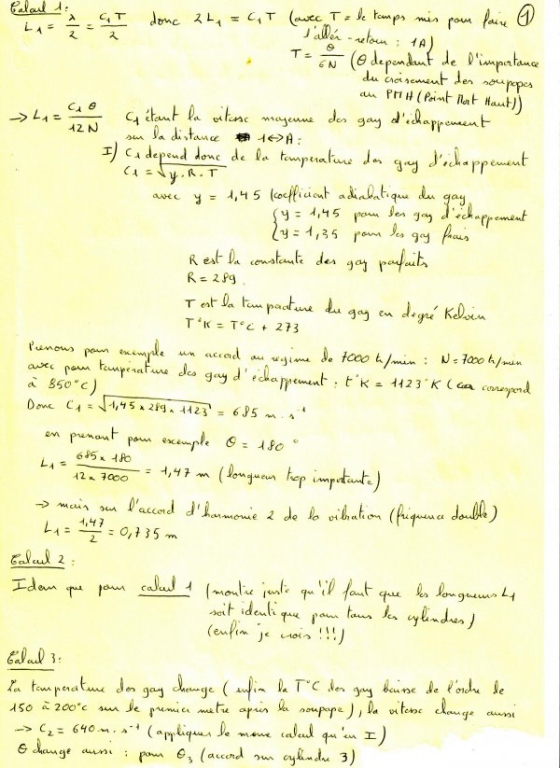 Calcul 1: ①
L1 = λ/2 = C1T/2 donc 2L1 = C1T (avec T = le temps mis pour faire
l'aller-retour : 1A)
T = θ/6N (θ dépendant de l'importance
du croisement des soupapes
au PMH (Point Mort Haut))
→ L1 = C1 θ/12N C1 étant la vitesse moyenne des gaz d'échappement
sur la distance 1↔A :
I) C1 dépend donc de la température des gaz d'échappement
C1 = √y.R.T
avec y = 1,45 (coefficient adiabatique du gaz
{y = 1,45 pour les gaz d'échappement
{y = 1,35 pour les gaz frais
R est la constante des gaz parfaits
R = 289.
T est la température du gaz en degré Kelvin
T°K = T°C + 273
Prenons pour exemple un accord au régime de 7000 tr/min : N = 7000 tr/min
avec pour température des gaz d'échappement : t°K = 1123°K (correspond
à 850°C)
Donc C1 = √1,45 x 289 x 1123 = 685 m.s⁻¹
en prenant pour exemple θ = 180°
L1 = 685 x 180/12 x 7000 = 1,47 m (longueur trop importante)
→ mais sur l'accord d'harmonie 2 de la vibration (fréquence double)
L1 = 1,47/2 = 0,735 m
Calcul 2 :
Idem que pour calcul 1 (montre juste qu'il faut que les longueurs L1
soit identique pour tous les cylindres)
(enfin je crois !!!)
Calcul 3 :
La température des gaz change (enfin la T°C des gaz baisse de l'ordre de
150 à 200°C sur le premier mètre après la soupape), la vitesse change aussi
→ C2 = 640 m.s⁻¹ (appliquer le même calcul qu'en I)
θ change aussi : pour θ3 (accord sur cylindre 3)